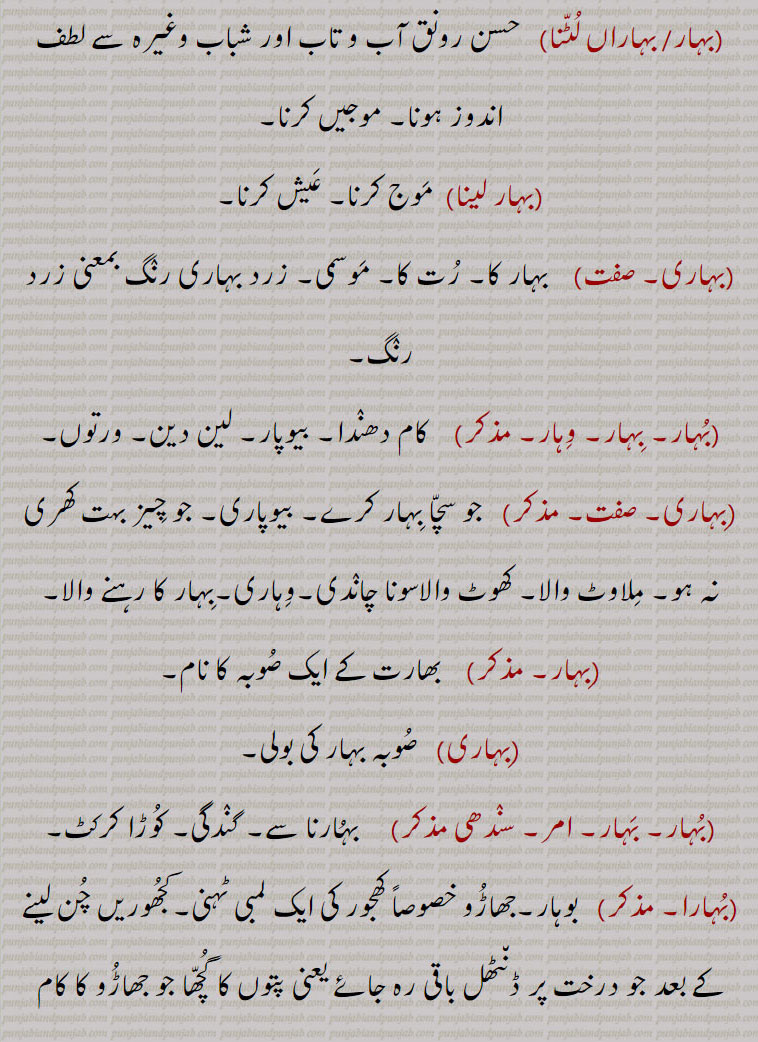 (بہار/ بہاراں لُٹّنا) حسن رونق آب و تاب اور شباب وغیرہ سے لطف
اندوز ہونا۔ موجیں کرنا۔
(بہار لینا) مَوج کرنا۔ عَیش کرنا۔
(بہاری۔ صفت) بہار کا۔ رُت کا۔ مَوسمی۔ زرد بہاری رنگ بمعنی زرد
رنگ۔
(بُہار۔ بِہار۔ وِہار۔ مذکر) کام دھندا۔ بیوپار۔ لین دین۔ ورتوں۔
(بِہاری۔ صفت۔ مذکر) جو سچّا بِہار کرے۔ بیوپاری۔ جو چِیز بہت کھری
نہ ہو۔ مِلاوٹ والا۔ کھوٹ والاسونا چاندی۔وِہاری۔بِہار کا رہنے والا۔
(بِہار۔ مذکر) بھارت کے ایک صُوبہ کا نام۔
(بہاری) صُوبہ بہار کی بولی۔
(بُہار۔ بَہار۔ امر۔ سندھی مذکر) بہُارنا سے۔ گندگی۔ کُوڑا کرکٹ۔
(بُہارا۔ مذکر) بوہار۔جھاڑُو خصوصاً کھجور کی ایک لمبی ٹہنی۔کھجُوریں چُن لینے
کے بعد جو درخت پر ڈنّٹھل باقی رہ جائے یعنی پتوں کا گُچھّا جو جھاڑُو کا کام